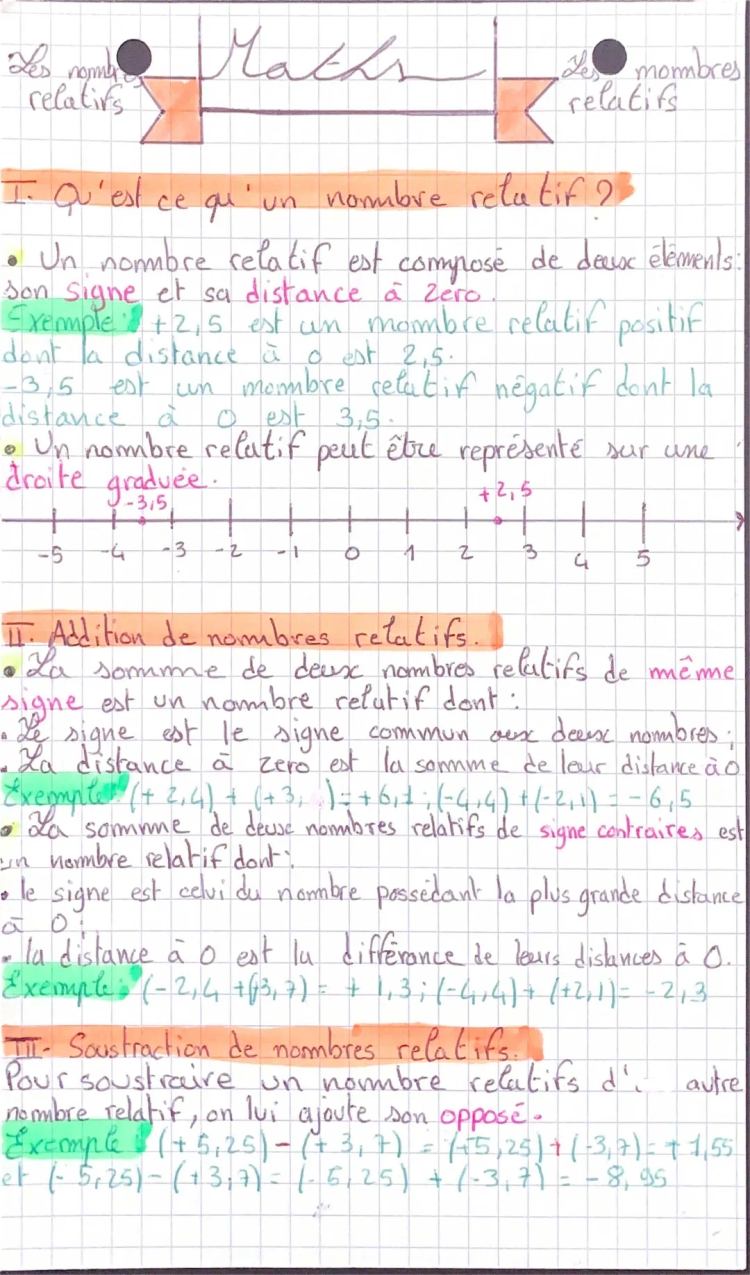 Maths
Les nombres
relatifs
Les nombres
relatifs
I. Qu'est ce qu'un nombre relatif ?
• Un nombre relatif est composé de deux éléments:
son signe et sa distance à zero.
Exemple : +2,5 est un nombre relatif positif
dont la distance à 0 est 2,5.
-3,5 est un nombre relatif négatif dont la
distance à 0 est 3,5.
• Un nombre relatif peut être représenté sur une
droite graduée.
-3,5 +2,5
-5 -4 -3 -2 -1 0 1 2 3 4 5
II. Addition de nombres relatifs.
• La somme de deux nombres relatifs de même
signe est un nombre relatif dont :
. Le signe est le signe commun aux deux nombres ;
. La distance à zero est la somme de leur distance à 0
Exemple : (+ 2,4) + (+3, ) = +6,1 ; (-4,4) + (-2,1) = -6,5
• La somme de deux nombres relatifs de signe contraires est
un nombre relatif dont :
• le signe est celui du nombre possédant la plus grande distance
à 0 ;
- la distance à 0 est la différance de leurs distances à 0.
Exemple : (-2,4 +(+3,7) = + 1,3 ; (-4,4) + (+2,1) = -2,3
III- Soustraction de nombres relatifs.
Pour soustraire un nombre relatifs d' autre
nombre relatif, on lui ajoute son opposé.
Exemple : (+5,25) - (+3,7) = (+5,25) + (-3,7) = +1,55
et (-5,25) - (+3,7) = (-5,25) + (-3,7) = -8,95